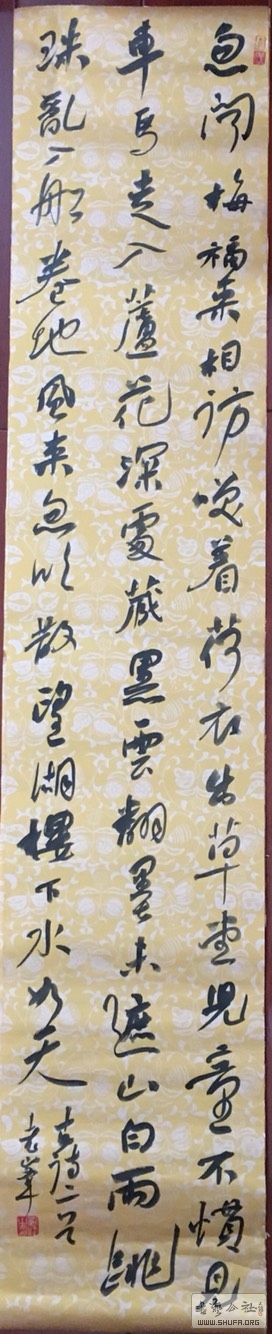 忽聞梅福来相訪咲着荷衣出草堂兒童不慣見
車馬走入蘆花深處藏黑雲翻墨未遮山白雨跳
珠亂入船卷地風来忽吹散望湖樓下水如天
古詩二首
老峯
书艺公社
WWW.SHUFA.ORG